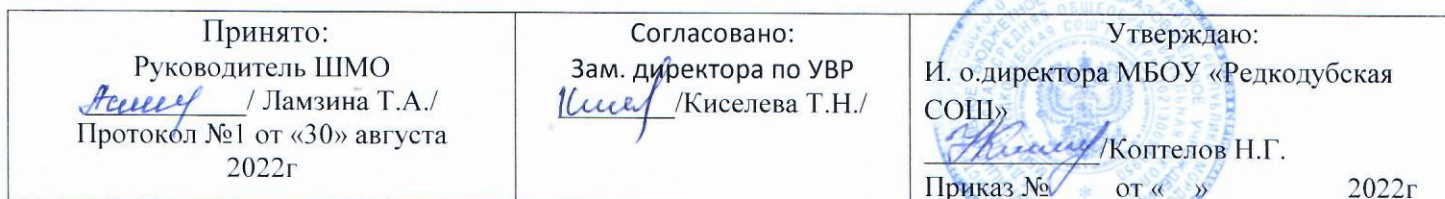 Принято:
Руководитель ШМО
/ Ламзина Т.А./
Протокол №1 от «30» августа
2022г
Согласовано:
Зам. директора по УВР
/Киселева Т.Н./
Утверждаю:
И. о.директора МБОУ «Редкодубская
СОШ»
/Коптелов Н.Г.
Приказ № от « » 2022г